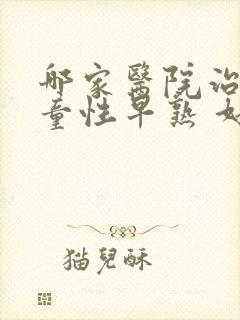 哪家醫院治
童性早熟
猫兒酥